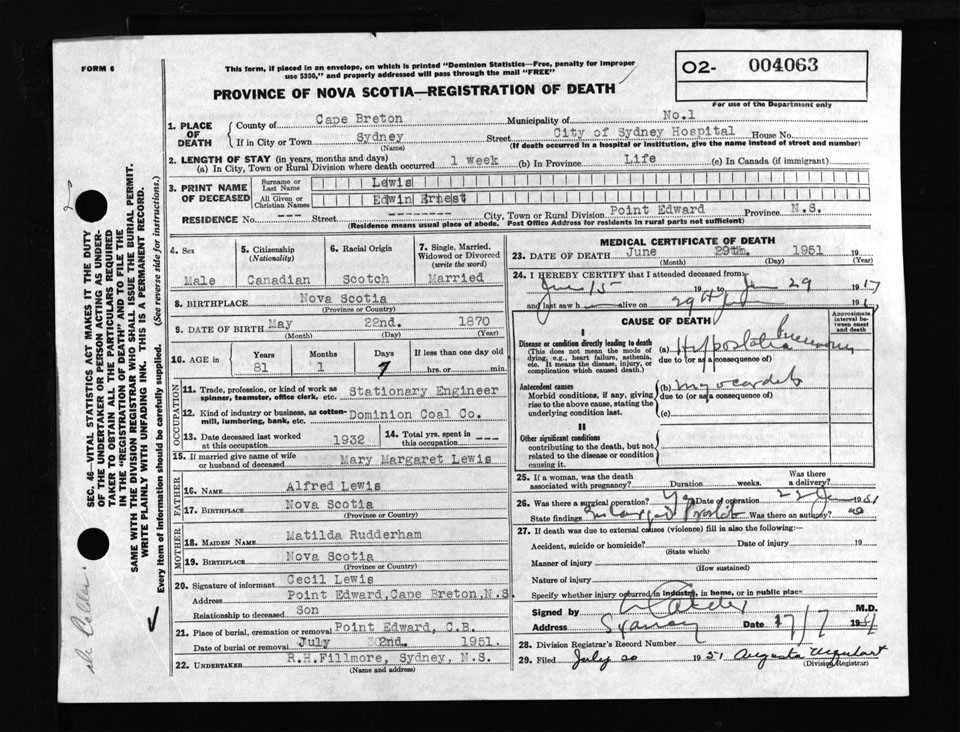 FORM 6
This form, if placed in an envelope, on which is printed "Dominion Statistics—Free, penalty for improper
use $300," and properly addressed will pass through the mail "FREE"
PROVINCE OF NOVA SCOTIA—REGISTRATION OF DEATH
02- 004063
For use of the Department only
1. PLACE OF DEATH
County of Cape Breton Municipality of No.1
If in City or Town Sydney Street City of Sydney Hospital House No.
(Name) (If death occurred in a hospital or institution, give the name instead of street and number)
2. LENGTH OF STAY (in years, months and days)
(a) In City, Town or Rural Division where death occurred 1 week (b) In Province Life (c) In Canada (if immigrant)
3. PRINT NAME OF DECEASED
Surname or Last Name Lewis
All Given or Christian Names Edwin Ernest
RESIDENCE No. --- Street -------- City, Town or Rural Division Point Edward Province N.S.
(Residence means usual place of abode. Post Office Address for residents in rural parts not sufficient)
4. Sex 5. Citizenship (Nationality) 6. Racial Origin 7. Single, Married, Widowed or Divorced (write the word)
Male Canadian Scotch Married
8. BIRTHPLACE Nova Scotia
(Province or Country)
9. DATE OF BIRTH May 22nd. 1870
(Month) (Day) (Year)
10. AGE in Years Months Days If less than one day old
81 1 7 hrs. or min.
OCCUPATION
11. Trade, profession, or kind of work as spinner, teamster, office clerk, etc. Stationary Engineer
12. Kind of industry or business, as cotton-mill, lumbering, bank, etc. Dominion Coal Co.
13. Date deceased last worked at this occupation 1932 14. Total yrs. spent in this occupation ---
15. If married give name of wife or husband of deceased Mary Margaret Lewis
FATHER
16. NAME Alfred Lewis
17. BIRTHPLACE Nova Scotia
(Province or Country)
MOTHER
18. MAIDEN NAME Matilda Rudderham
19. BIRTHPLACE Nova Scotia
(Province or Country)
20. Signature of informant Cecil Lewis
Address Point Edward, Cape Breton, N.S.
Relationship to deceased Son
21. Place of burial, cremation or removal Point Edward, C.B.
Date of burial or removal July 2nd. 1951.
22. UNDERTAKER R.H.Fillmore, Sydney, N.S.
(Name and address)
MEDICAL CERTIFICATE OF DEATH
23. DATE OF DEATH June 29th. 1951 19
(Month) (Day) (Year)
24. I HEREBY CERTIFY that I attended deceased from
June 15 19 to June 29 19
and last saw h alive on 29 19
CAUSE OF DEATH
Approximate interval between onset and death
I
Disease or condition directly leading to death
(This does not mean the mode of dying, e.g., heart failure, asthenia, etc. It means the disease, injury, or complication which caused death.)
(a) Hypostatic Pneumonia
due to (or as a consequence of)
Antecedent causes
Morbid conditions, if any, giving rise to the above cause, stating the underlying condition last.
(b) myocarditis
due to (or as a consequence of)
(c)
II
Other significant conditions
contributing to the death, but not related to the disease or condition causing it.
25. If a woman, was the death associated with pregnancy? Duration weeks. Was there a delivery?
26. Was there a surgical operation? Yes Date of operation 22 June 1951
State findings Enlarged Prostate Was there an autopsy? no
27. If death was due to external causes (violence) fill in also the following:—
Accident, suicide or homicide? Date of injury 19
(State which)
Manner of injury
(How sustained)
Nature of injury
Specify whether injury occurred in industry, in home, or in public place
Signed by M.D.
Address Sydney Date 17/7 1951
28. Division Registrar's Record Number
29. Filed July 20 1951 Augusta Urquhart
(Division Registrar)
SEC. 46—VITAL STATISTICS ACT MAKES IT THE DUTY
OF THE UNDERTAKER OR PERSON ACTING AS UNDER-
TAKER TO OBTAIN ALL THE PARTICULARS REQUIRED
IN THE "REGISTRATION OF DEATH" AND TO FILE THE
SAME WITH THE DIVISION REGISTRAR WHO SHALL ISSUE THE BURIAL PERMIT.
WRITE PLAINLY WITH UNFADING INK. THIS IS A PERMANENT RECORD.
Every item of Information should be carefully supplied. (See reverse side for instructions.)